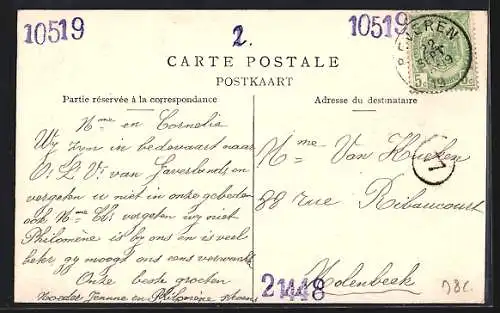 10519
2.
10519
CARTE POSTALE
POSTKAART
Partie réservée à la correspondance
Adresse du destinataire
5c 5c
Mme en Cornelia
Wy zyn in bedevaart naar
O: L: V: van Gaverlands en
vergeten u niet in onze gebeden
ook Mme vergeten wy niet
Philomène is by ons en is veel
beter gy moogt ons eens
Onze beste groeten
Moeder Jeanne en Philomène
Mme Van
88 rue Ribaucourt
Molenbeek
1
2 1448